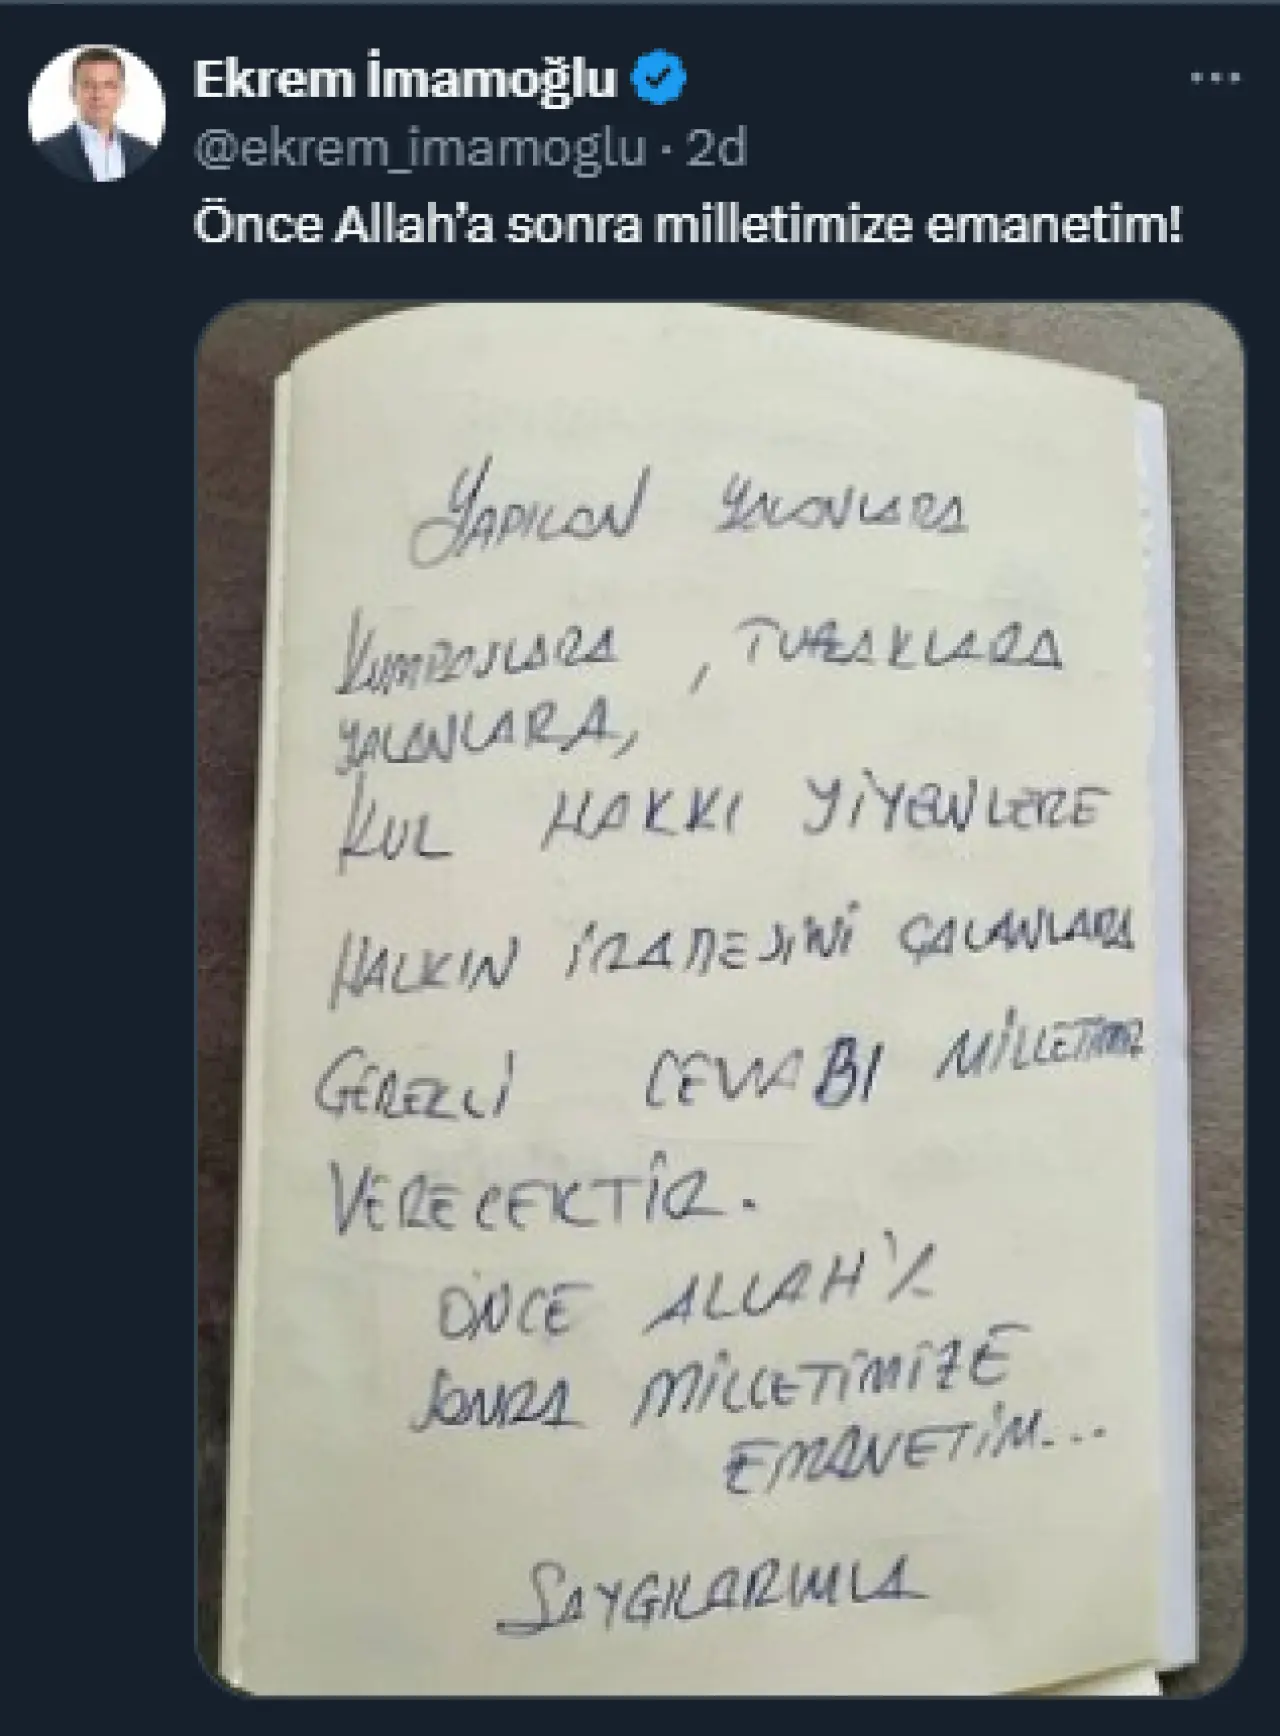 Ekrem İmamoğlu
@ekrem_imamoglu · 2d
Önce Allah'a sonra milletimize emanetim!
YAPILAN YALANLARA
KUMPASLARA , TUZAKLARA
YALANLARA,
KUL HAKKI YİYENLERE
HALKIN İRADESİNİ ÇALANLARA
GEREKLİ CEVABI MİLLETİMİZ
VERECEKTİR.
ÖNCE ALLAH'A
SONRA MİLLETİMİZE
EMANETİM...
SAYGILARIMLA